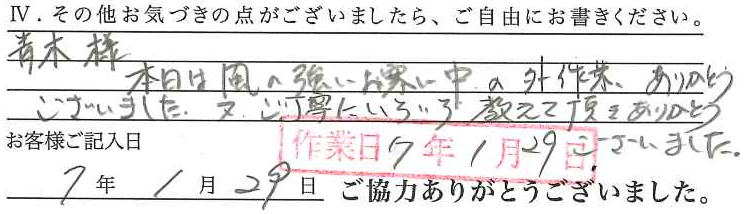 Ⅳ．その他お気づきの点がございましたら、ご自由にお書きください。
青木様
本日は風の強いお寒い中の外作業、ありがとう
ございました。又、ご丁寧にいろいろ教えて頂きありがとう
ございました。
お客様ご記入日
作業日 7年1月29日
7年1月29日 ご協力ありがとうございました。